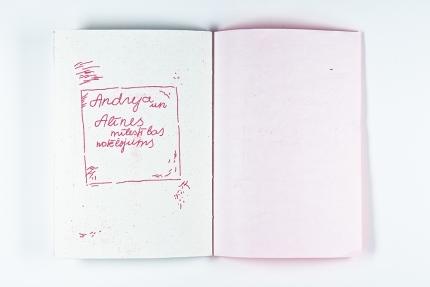 Andreja un
Alīnes
mīlestības
noslēgums